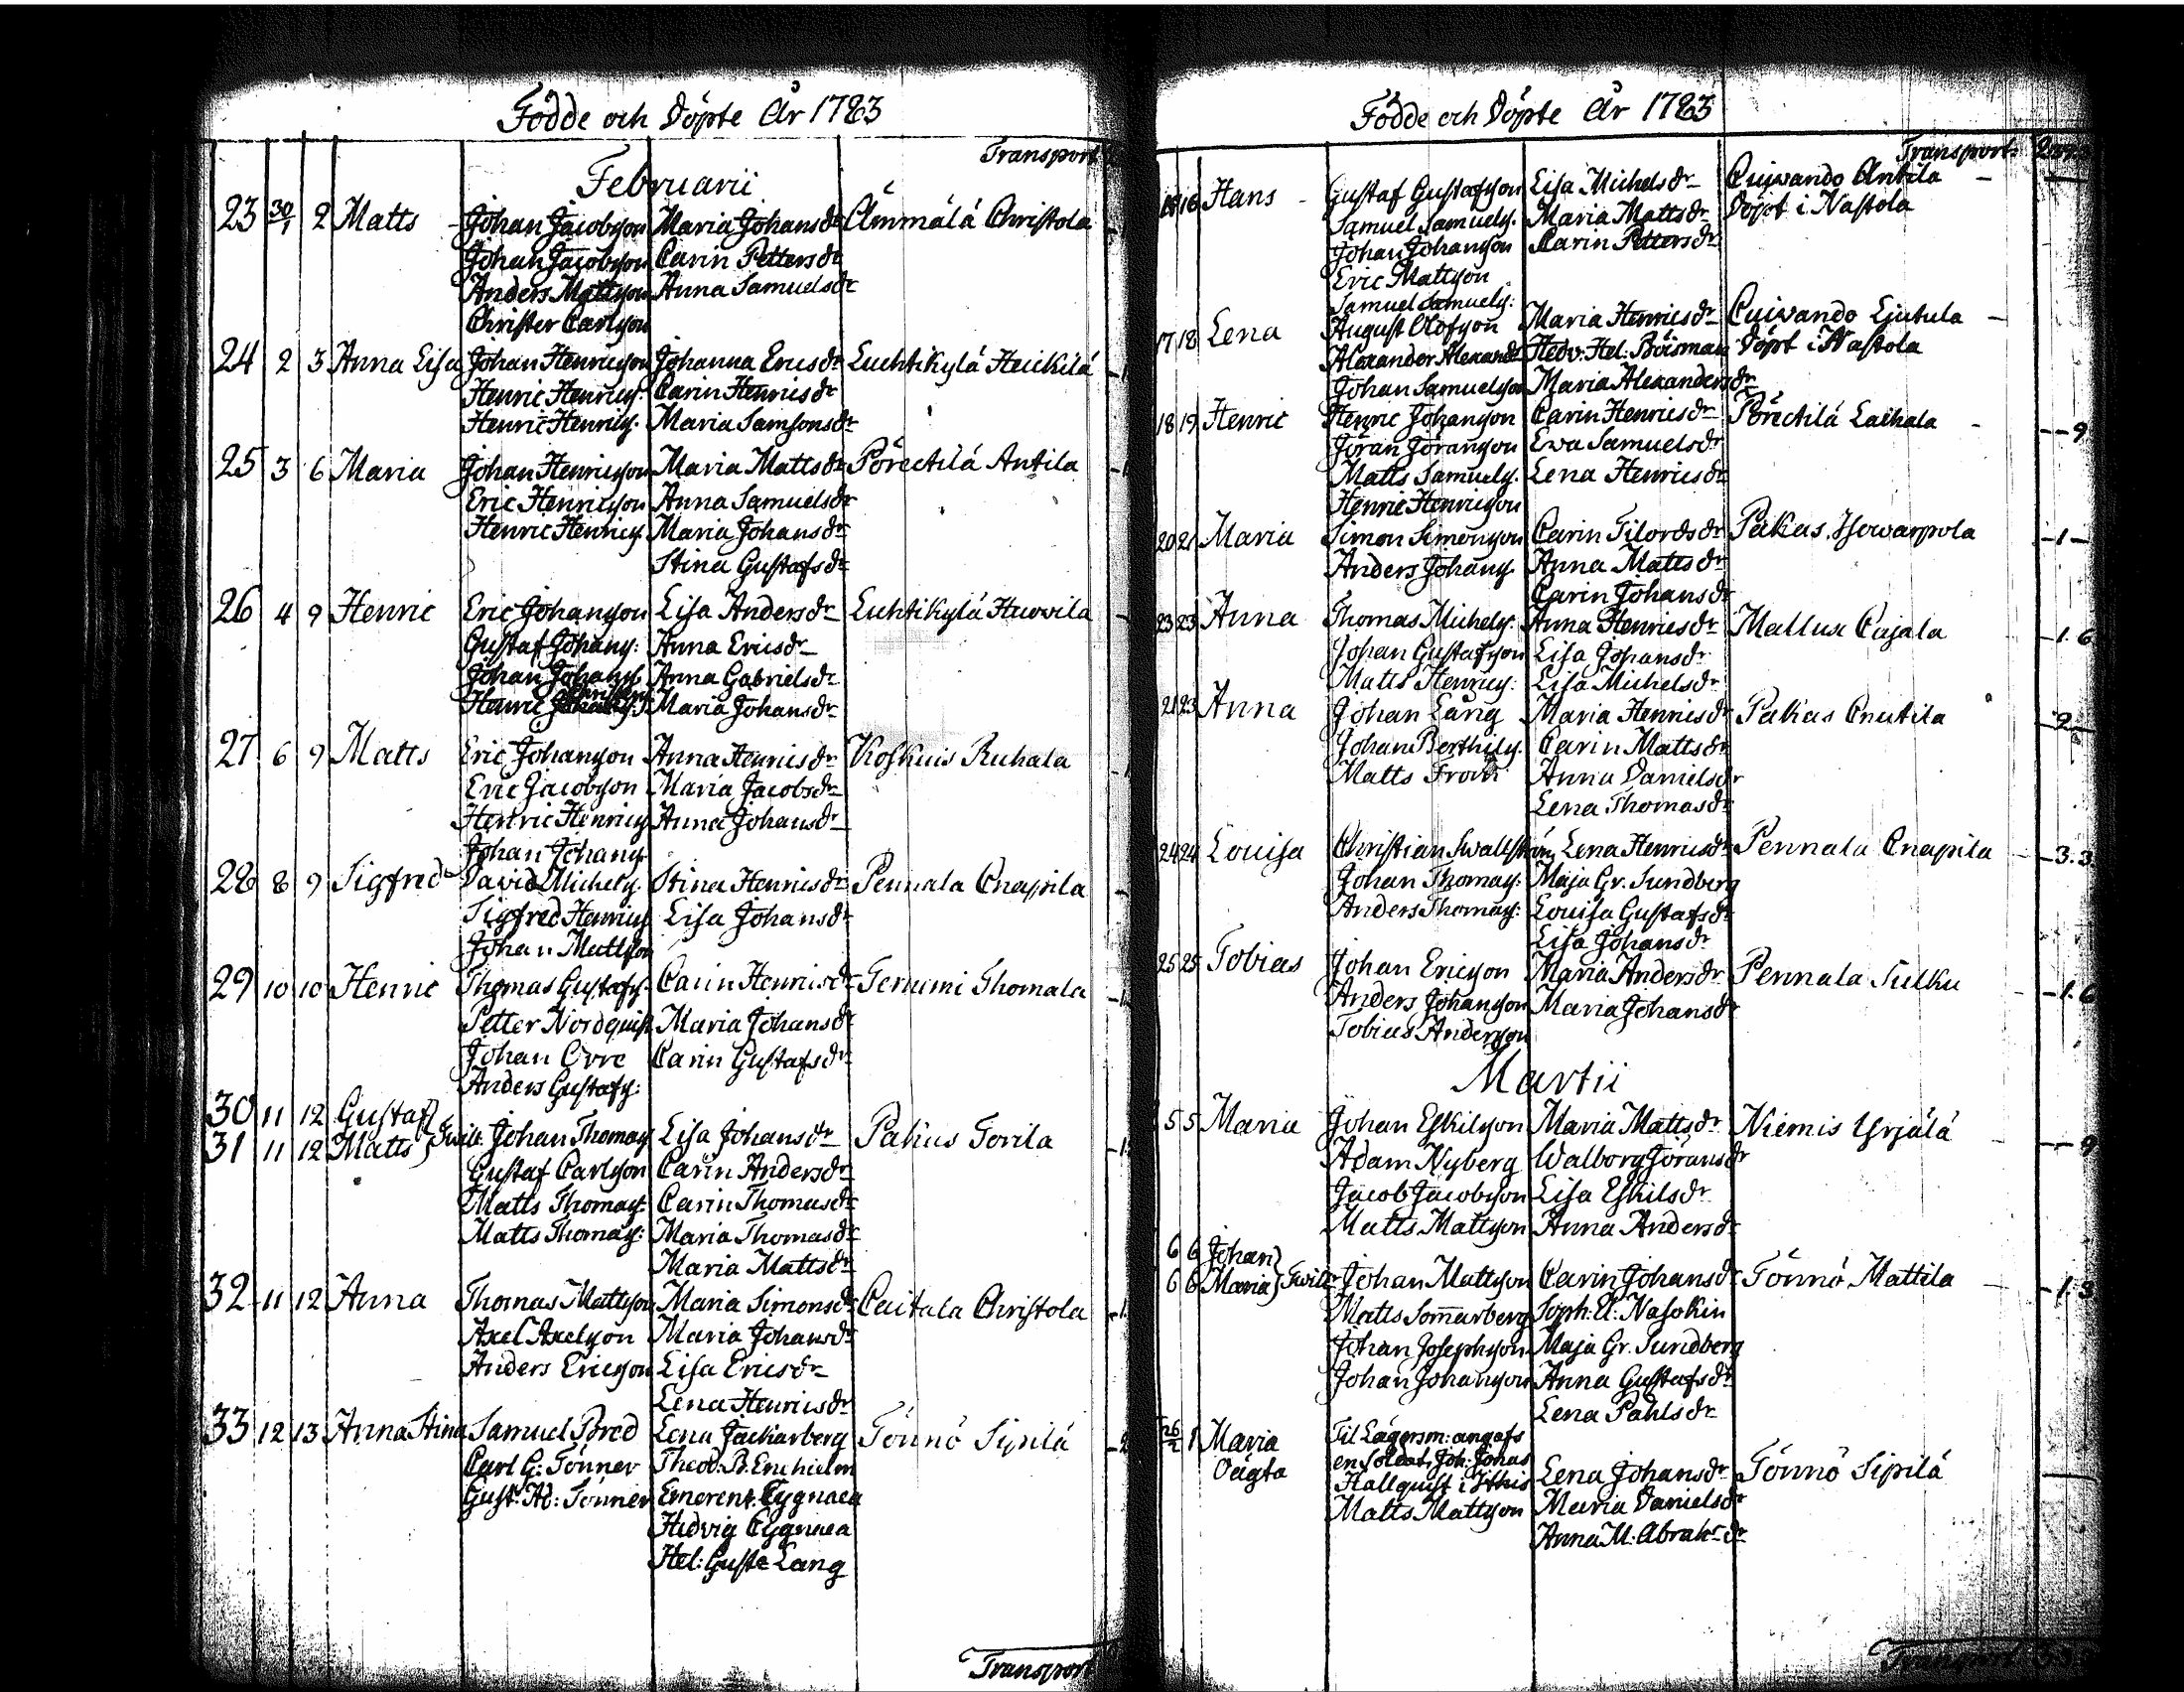 Födde och Döpte År 1783
Transport
Februarii
23 30/1 2 Matts Johan Jacobsson Maria Johansdr Ämmälä Christola
Johan Jacobsson Carin Pettersdr
Anders Mattsson Anna Samuelsdr
Christer Carlsson
24 2 3 Anna Lisa Johan Henricsson Johanna Ericsdr Luhtikylä Heickilä
Henric Henrics: Carin Henricsdr
Henric Henrics. Maria Samsonsdr
25 3 6 Maria Johan Henricsson Maria Mattsdr Pörectilä Antila
Eric Henricsson Anna Samuelsdr
Henric Henrics. Maria Johansdr
Stina Gustafsdr
26 4 9 Henric Eric Johansson Lisa Andersdr Luhtikylä Huovila
Gustaf Johans: Anna Ericsdr
Johan Johans. Anna Gabrielsdr
Henric Christers. Maria Johansdr
27 6 9 Matts Eric Johansson Anna Henricsdr Koskuis Ruhala
Eric Jacobsson Maria Jacobsdr
Henric Henrics. Anna Johansdr
Johan Johans.
28 8 9 Sigfred David Michels. Stina Henricsdr Pennala Cnapila
Sigfred Henrics. Lisa Johansdr
Johan Mattsson
29 10 10 Henric Thomas Gustafs. Carin Henricsdr Tenumi Thomala
Petter Nordquist Maria Johansdr
Johan Orre Carin Gustafsdr
Anders Gustafs:
30 11 12 Gustaf
31 11 12 Matts Twill. Johan Thomass. Lisa Johansdr Pakas Tovila
Gustaf Carlsson Carin Andersdr
Matts Thomass: Carin Thomasdr
Matts Thomass: Maria Thomasdr
Maria Mattsdr
32 11 12 Anna Thomas Mattsson Maria Simonsdr Caitala Christola
Axel Axelsson Maria Johansdr
Anders Ericsson Lisa Ericsdr
Lena Henricsdr
33 12 13 Anna Stina Samuel Bred Lena Jackarberg Tönnö Sipilä
Carl G: Tönner Theod: B. Enehielm
Gust: Ad: Tönner Emerent. Cygnaea
Hedvig Cygnaea
Hel: Gust: Lang
Transport
Födde och Döpte År 1783
Transport
16 Hans Gustaf Gustafsson Lisa Michelsdr Cuivando Antila
Samuel Samuels. Maria Mattsdr Döpt i Nastola
Johan Johansson Carin Pettersdr
Eric Mattsson
Samuel Samuels:
17 18 Lena August Olofsson Maria Henricsdr Cuivando Ljutula
Alexander Alexand: Hedv: Hel: Boisman Döpt i Nastola
Johan Samuelsson Maria Alexandersdr
18 19 Henric Henric Johansson Carin Henricsdr Pörectilä Laihala 9
Jöran Jöransson Ewa Samuelsdr
Matts Samuels. Lena Henricsdr
Henric Henricsson
20 21 Maria Simon Simonsson Carin Tilordsdr Pakas 1
Anders Johans. Anna Mattsdr
Carin Johansdr
23 23 Anna Thomas Michels. Anna Henricsdr Mallusa Cajala 1.6
Johan Gustafsson Lisa Johansdr
Matts Henrics: Lisa Michelsdr
21 23 Anna Johan Lång Maria Henricsdr Pakas Cnutila 2
Johan Berthils. Carin Mattsdr
Matts From Anna Danielsdr
Lena Thomasdr
24 24 Louisa Christian Swallström Lena Henricsdr Pennala Cnapila 3.3
Johan Thomass: Maja Gr. Sundberg
Anders Thomass: Louisa Gustafsdr
Lisa Johansdr
25 25 Tobias Johan Ericsson Maria Andersdr Pennala Sulku 1.6
Anders Johansson Maria Johansdr
Tobias Andersson
Martii
5 5 Maria Johan Eskilsson Maria Mattsdr Niemis Yrjälä 9
Adam Nyberg Walborg Jöransdr
Jacob Jacobsson Lisa Eskilsdr
Matts Mattsson Anna Andersdr
6 6 Johan
6 6 Maria Twill. Johan Mattsson Carin Johansdr Tönnö Mattila 1.3
Matts Som̄arberg Soph: El: Nasokin
Johan Josephsson Maja Gr. Sundberg
Johan Johansson Anna Gustafsdr
Lena Påhlsdr
26/2 1 Maria Til Lägersm: angafs
Oägta en Soldat, Joh: Johas
Hallquist i Lena Johansdr Tönnö Sipilä
Matts Mattsson Maria Danielsdr
Anna M: Abrah:dr
Transport